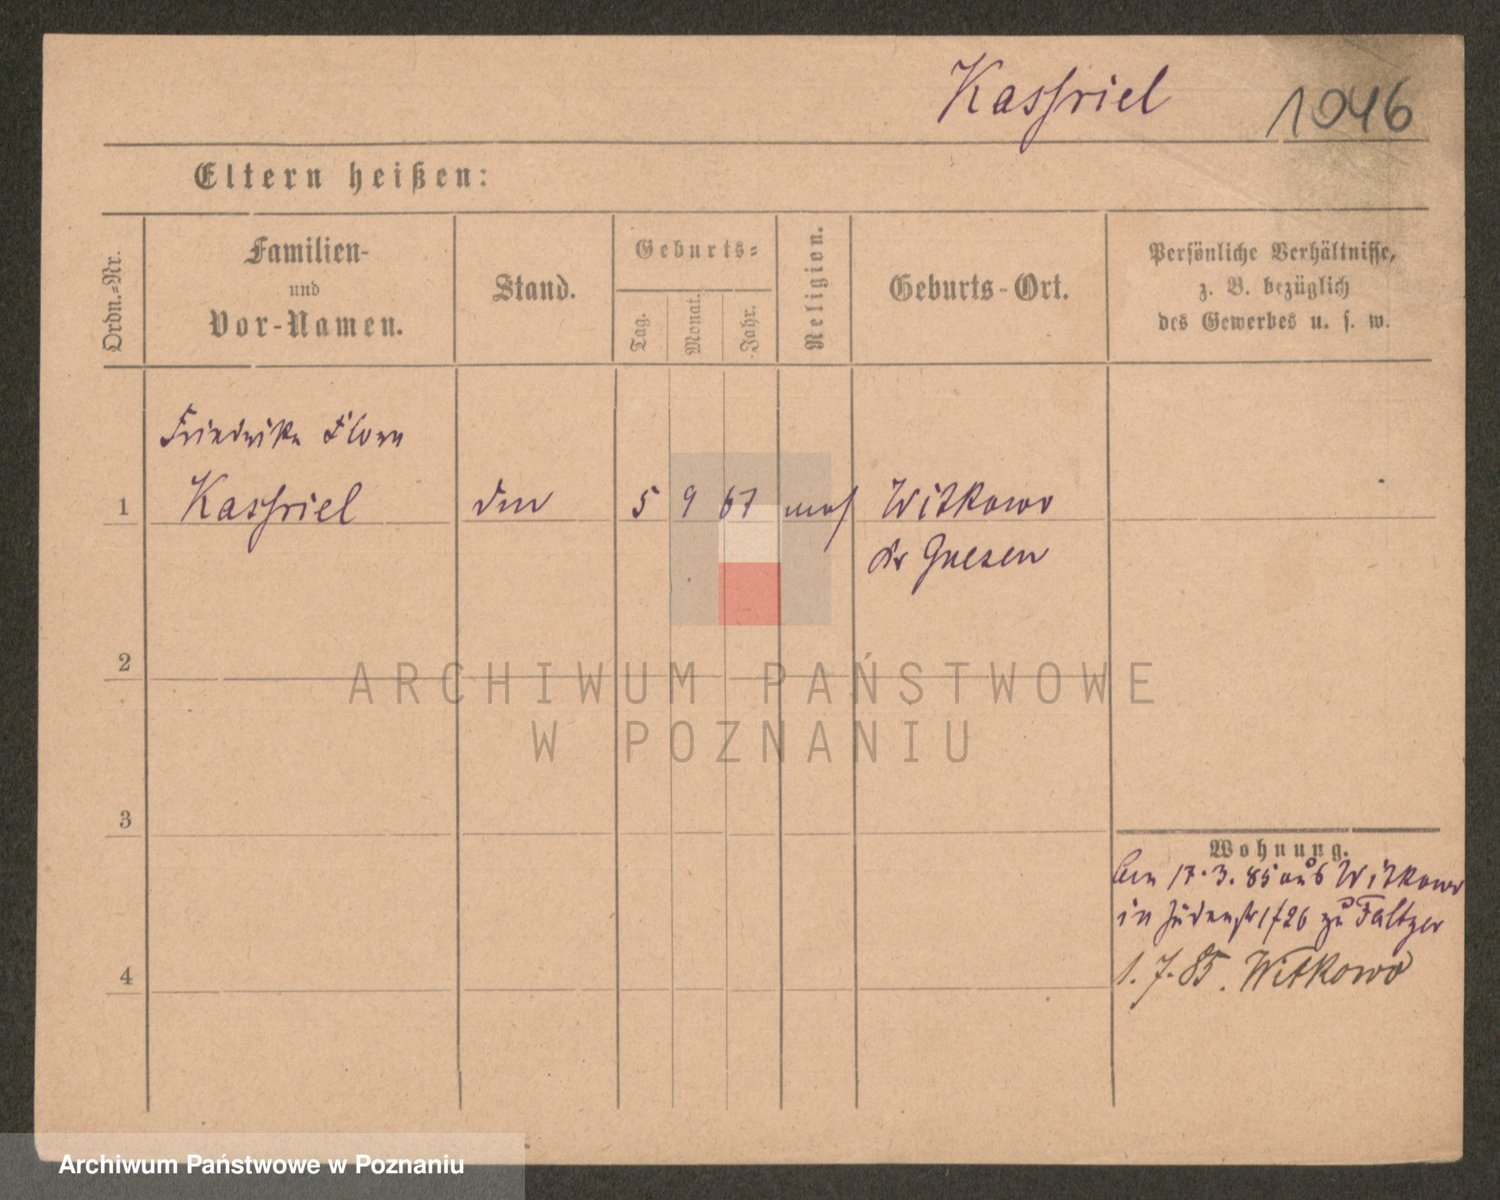 Kassriel 1046
Eltern heißen:
Ordn.-Nr.
Familien-
und
Vor-Namen.
Stand.
Geburts-
Tag.
Monat.
Jahr.
Religion.
Geburts-Ort.
Persönliche Verhältnisse,
z. B. bezüglich
des Gewerbes u. s. w.
Friedrike Flora
1 Kassriel 5 9 67 mos Witkowo
Kr Gnesen
2
ARCHIWUM PAŃSTWOWE
W POZNANIU
3
Wohnung.
17.3.85 aus Witkowo
in Judenstr 1/26 zu
4
1.7.85. Witkowo
Archiwum Państwowe w Poznaniu